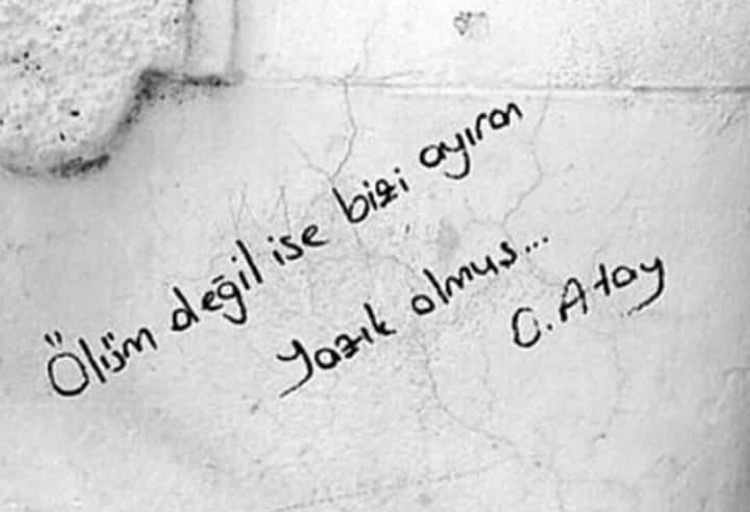 Ölüm değil ise bizi ayıran
Yazık olmuş...
O. Atay